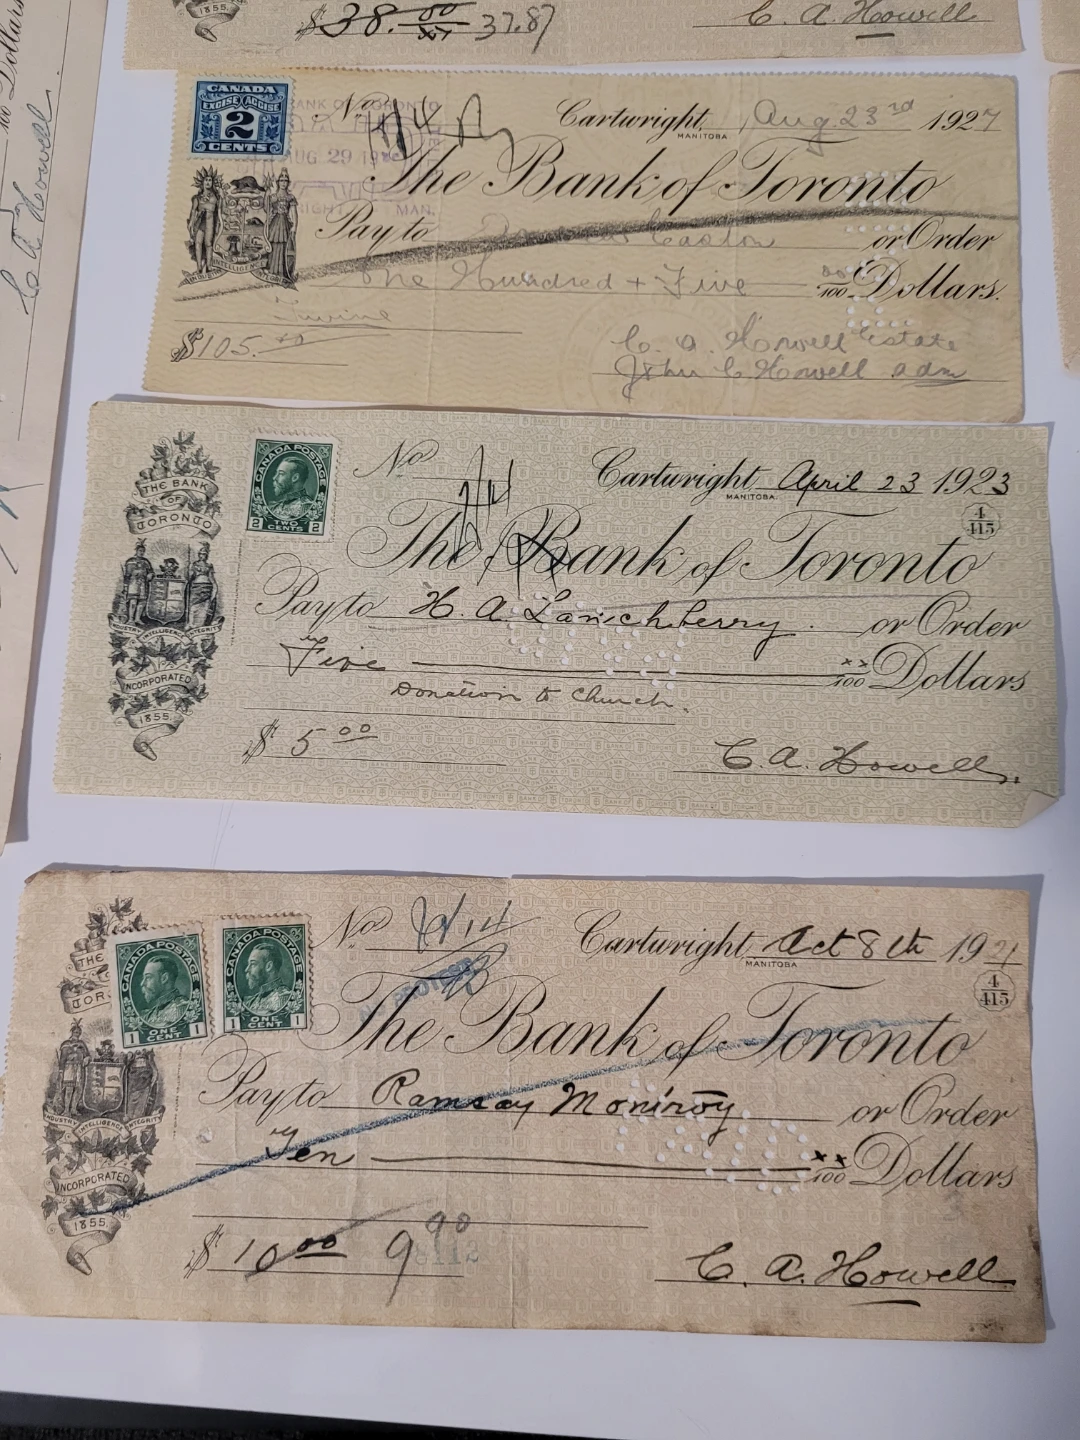 1855.
$38.00 37.87
C. A. Howell
100 Dollars
C. A. Howell
CANADA
EXCISE ACCISE
2
CENTS
BANK OF TORONTO
AUG 29
MAN.
No
Cartwright, Aug 23rd 1927
MANITOBA
The Bank of Toronto
Pay to or Order
One Hundred + Five 00/100 Dollars.
Irvine
$105.
C. A. Howell Estate
John C Howell adm
INTELLIGENCE
THE BANK
OF
TORONTO
INDUSTRY INTELLIGENCE INTEGRITY
INCORPORATED
1855.
CANADA POSTAGE
2 TWO CENTS 2
No
Cartwright, April 23 1923
MANITOBA.
4
415
The Bank of Toronto
Pay to H. A. or Order
Five xx/100 Dollars
Donation to Church.
$ 5 00
C. A. Howell.
THE
TOR
INDUSTRY INTELLIGENCE INTEGRITY
INCORPORATED
1855.
CANADA POSTAGE
1 ONE CENT 1
CANADA POSTAGE
1 ONE CENT 1
No
Cartwright, Oct 8th 192
MANITOBA
4
415
The Bank of Toronto
Pay to Ramsay or Order
Ten xx/100 Dollars
$ 10 00 9 90
C. A. Howell